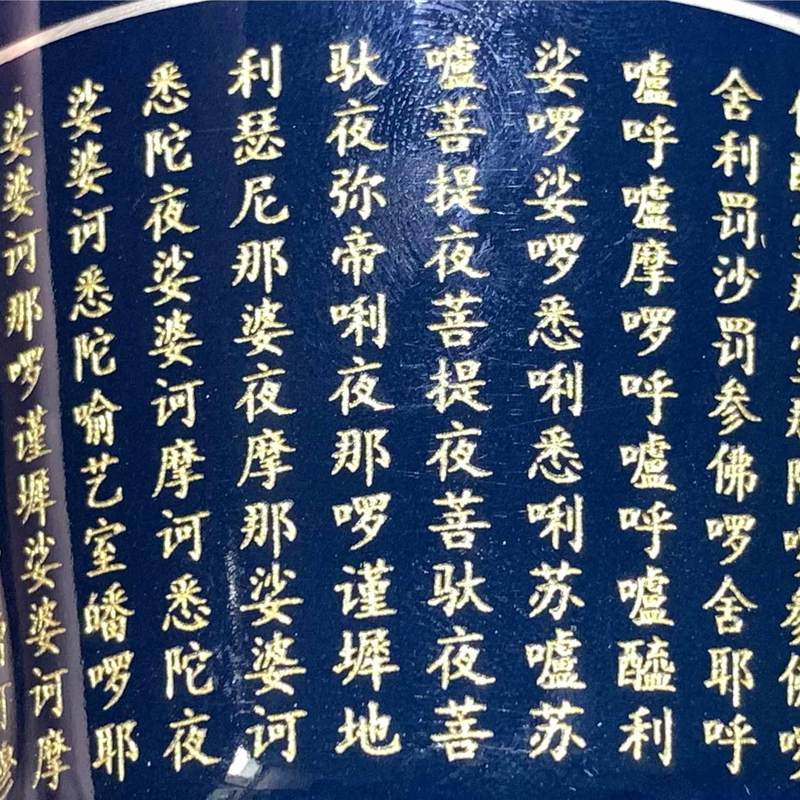 舍利罚沙罚参佛啰舍耶呼
嚧呼嚧摩啰呼嚧呼嚧醯利
娑啰娑啰悉唎悉唎苏嚧苏
嚧菩提夜菩提夜菩驮夜菩
驮夜弥帝唎夜那啰谨墀地
利瑟尼那婆夜摩那娑婆诃
悉陀夜娑婆诃摩诃悉陀夜
娑婆诃悉陀喻艺室皤啰耶
娑婆诃那啰谨墀娑婆诃摩